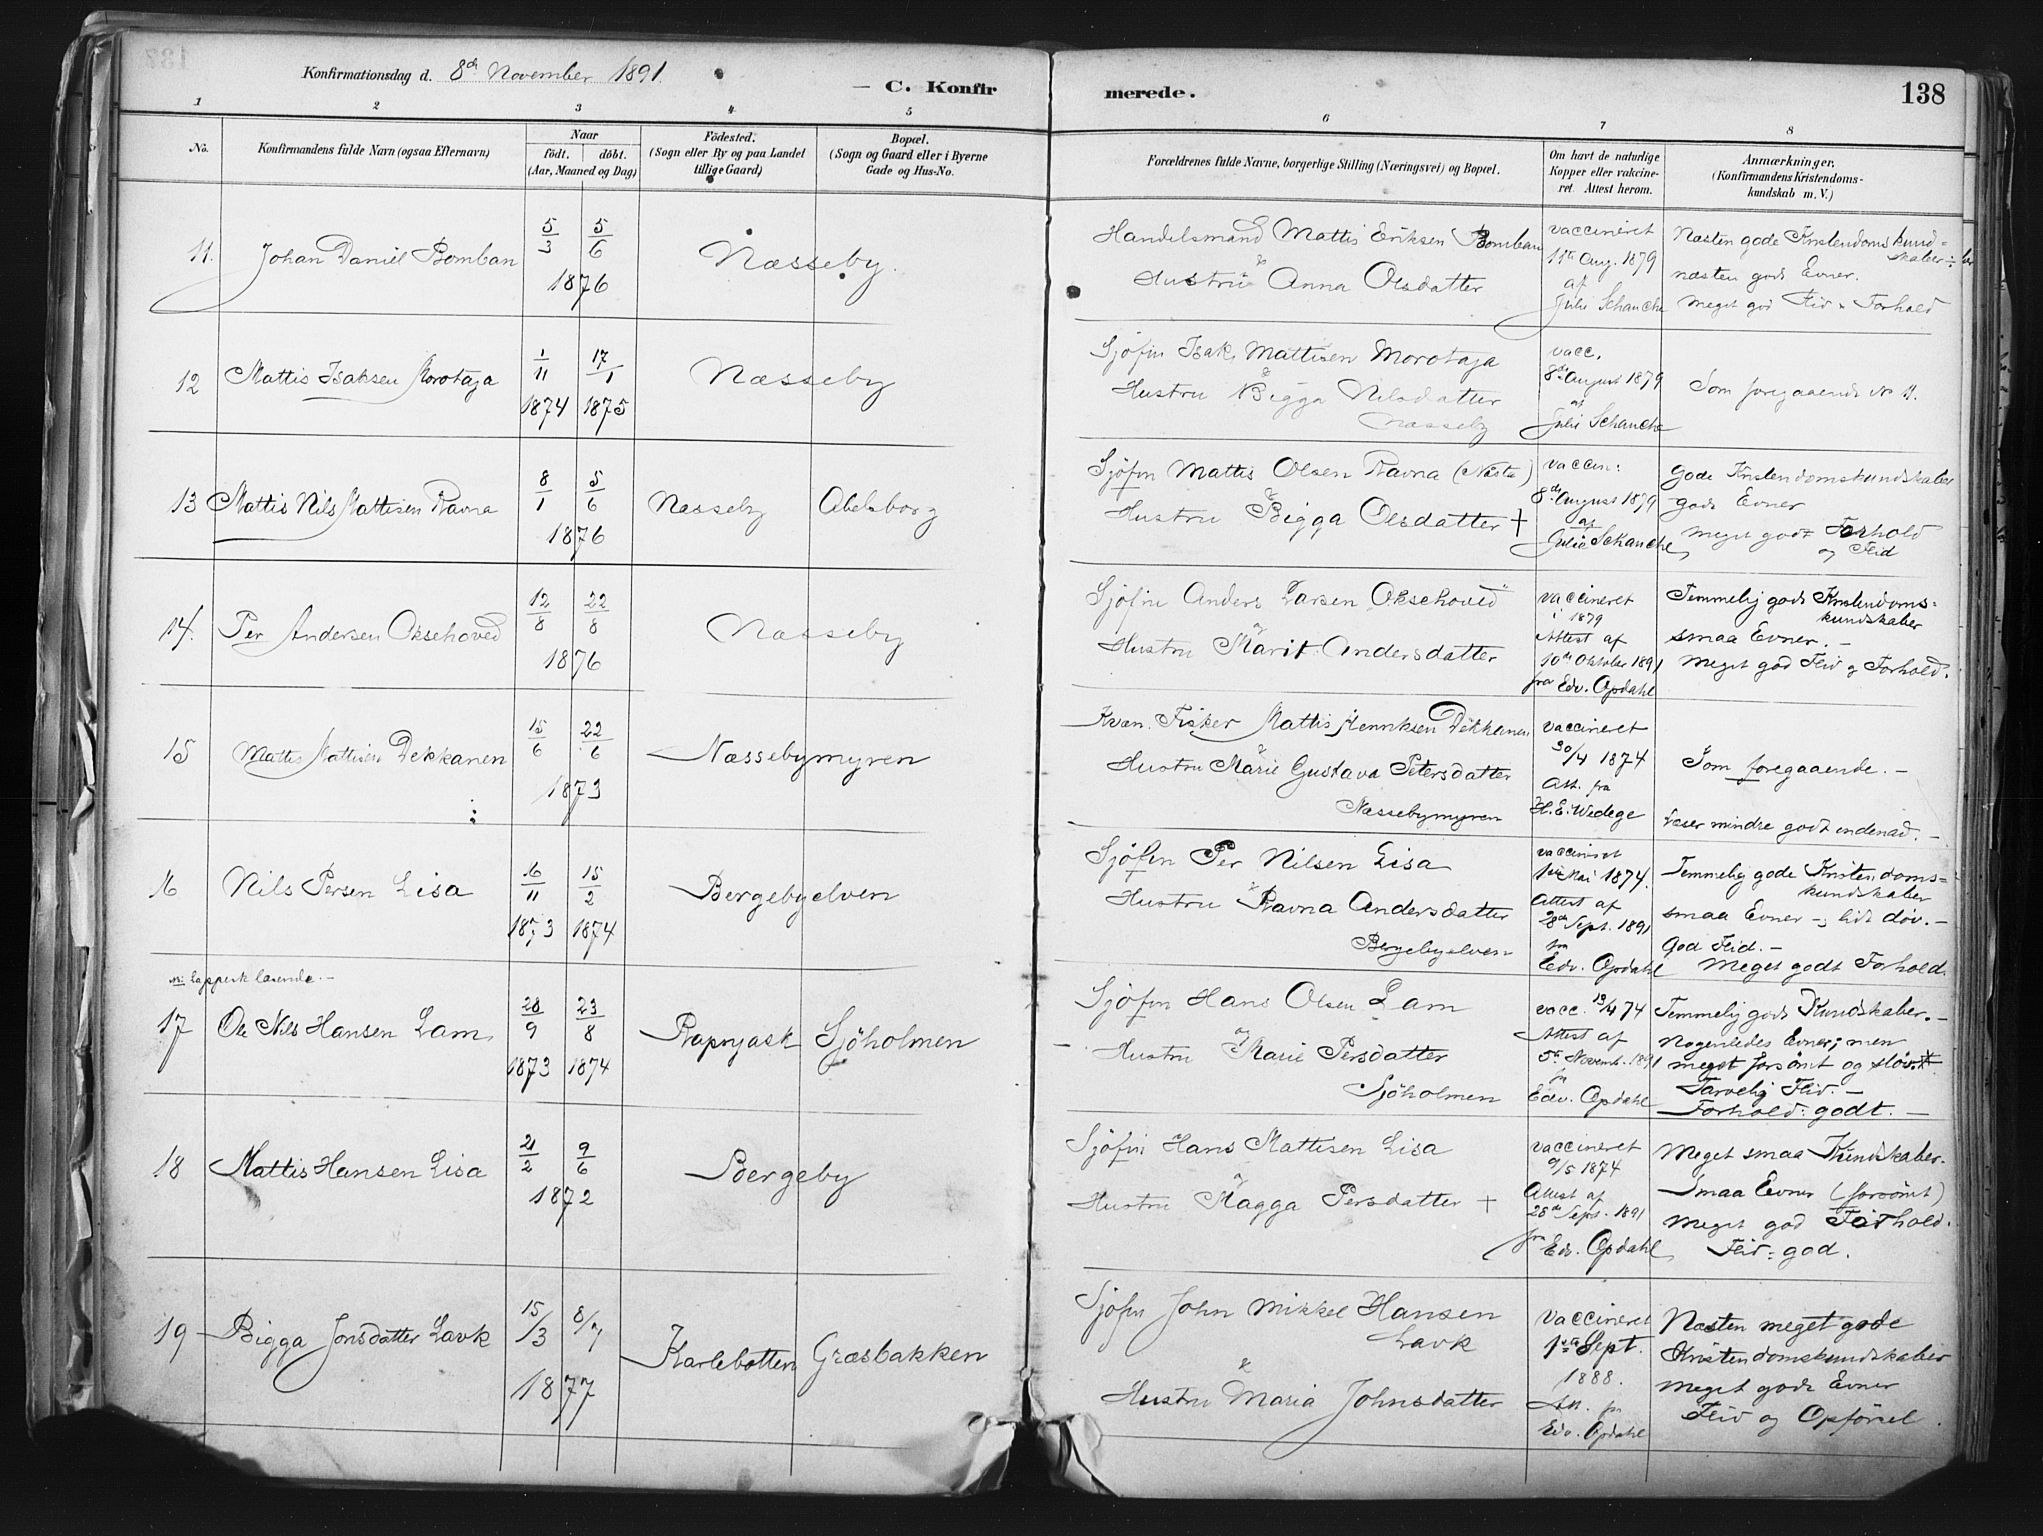 Konfirmationsdag d. 8de November 1891. C. Konfir
merede. 138
1 2 3 4 5 6 7 8
No.
Konfirmandens fulde Navn (ogsaa Efternavn)
Naar
födt. döbt.
(Aar, Maaned og Dag)
Födested.
(Sogn eller By og paa Landet
tillige Gaard)
Bopæl.
(Sogn og Gaard eller i Byerne
Gade og Hus-No.
Forældrenes fulde Navne, borgerlige Stilling (Næringsvei) og Bopæl.
Om havt de naturlige
Kopper eller vakcine-
ret. Attest herom.
Anmærkninger.
(Konfirmandens Kristendoms-
kundskab m. V.)
11. Johan Daniel Bomban
5/3 5/6
1876
Næsseby.
Handelsmand Mattis Eriksen Bomban
&
Hustru Anna Olsdatter
vaccineret
11te Aug. 1879
af
Julie Schanche
Næsten gode Kristendomskund=
skaber
næsten gode Evner.
Meget god Flid & Forhold
12 Mattis Isaksen Morotaja
1/11 17/1
1874 1875
Næsseby
Sjöfin Isak Mattisen Morotaja
&
Hustru Bigga Nilsdatter
Næsseby
vacc.
8de August 1879
af
Julie Schanche
Som foregaaende No 11.
13 Mattis Nils Mattisen Ravna
8/1 5/6
1876
Næsseby Abelsborg
Sjöfin Mattis Olsen Ravna (Nista)
&
Hustru Bigga Olsdatter +
vaccin:
8de August 1879
af
Julie Schanche
Gode Kristendomskundskaber
gode Evner
Meget godt Forhold
og Flid
14. Per Andersen Oksehoved
12/8 22/8
1876
Næsseby
Sjöfin Anders Larsen Oksehoved
og
Hustru Marit Andersdatter
vaccineret
i 1879
Attest af
10de Oktober 1891
fra Edv. Opdahl
Temmelig gode Kristendoms=
kundskaber
smaa Evner. -
Meget god Flid og Forhold.
15 Mattis Mattisen Dekkanen
15/6 22/6
1873
Næssebymyren
Kvæn. Fisker Mattis Henriksen Dekkanen
&
Hustru Marie Gustava Petersdatter
Næssebymyren
vaccineret
30/4 1874
Att. fra
H. E. Wedege
Som foregaaende. -
Læser mindre godt indenad. -
16 Nils Persen Lisa
16/11 15/2
1873 1874
Bergebyelven
Sjöfin Per Nilsen Lisa
Hustru Ravna Andersdatter
Bergebyelven
vaccineret
1ste Mai 1874.
Attest af
28de Sept. 1891
fra
Edv. Opdahl
Temmelig gode Kristendoms=
kundskaber
smaa Evner -, lidt döv. -
God Flid. -
Meget godt Forhold.
Lappisk læsende. -
17 Ole Nils Hansen Lam
28/9 23/8
1873 1874
Sjöholmen
Sjöfin Hans Olsen Lam
og
Hustru Marie Persdatter
Sjöholmen
vacc. 19/4 74
Attest af
5te Novemb. 1891
fra
Edv. Opdahl
Temmelig gode Kundskaber. -
Nogenledes Evner; men
meget forsömt og slövt.
Tarvelig Flid. -
Forhold: godt. -
18 Mattis Hansen Lisa
21/2 9/6
1872
Bergeby
Sjöfin Hans Mattisen Lisa
og
Hustru Magga Persdatter +
vaccineret
9/5 1874
Attest af
28de Sept. 1891
fra
Edv. Opdahl
Meget smaa Kundskaber.
Smaa Evner (forsömt)
Meget god Forhold.
Flid: god.
19 Bigga Jonsdatter Lavk
15/3 8/7
1877
Karlebotten Græsbakken
Sjöfin John Mikkel Hansen
Lavk
&
Hustru Maria Johnsdatter
Vaccineret
1ste Sept.
1888.
Att. fra
Edv. Opdahl
Næsten meget gode
Kristendomskundskaber
Meget gode Evner
Flid og Opförsel.